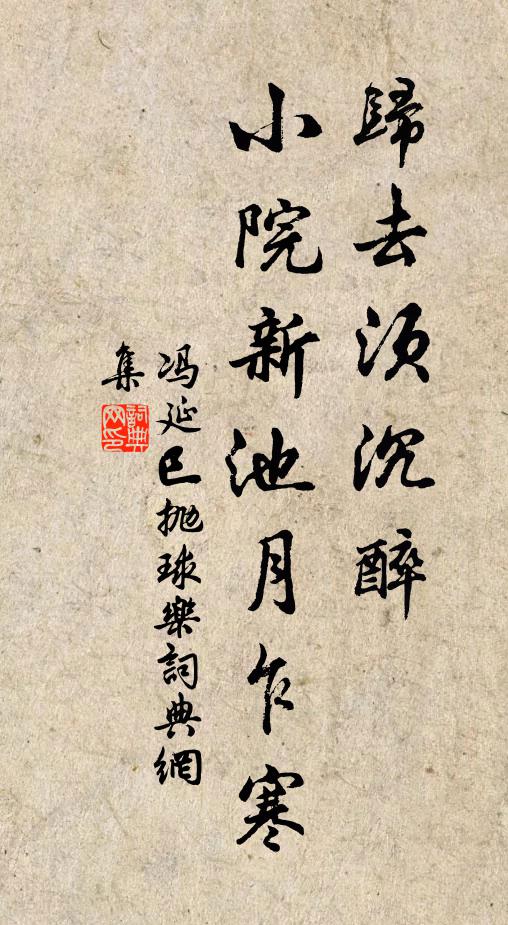 歸去須沉醉
小院新池月乍寒
冯延巳抛球樂詞典網
集
詞典網印